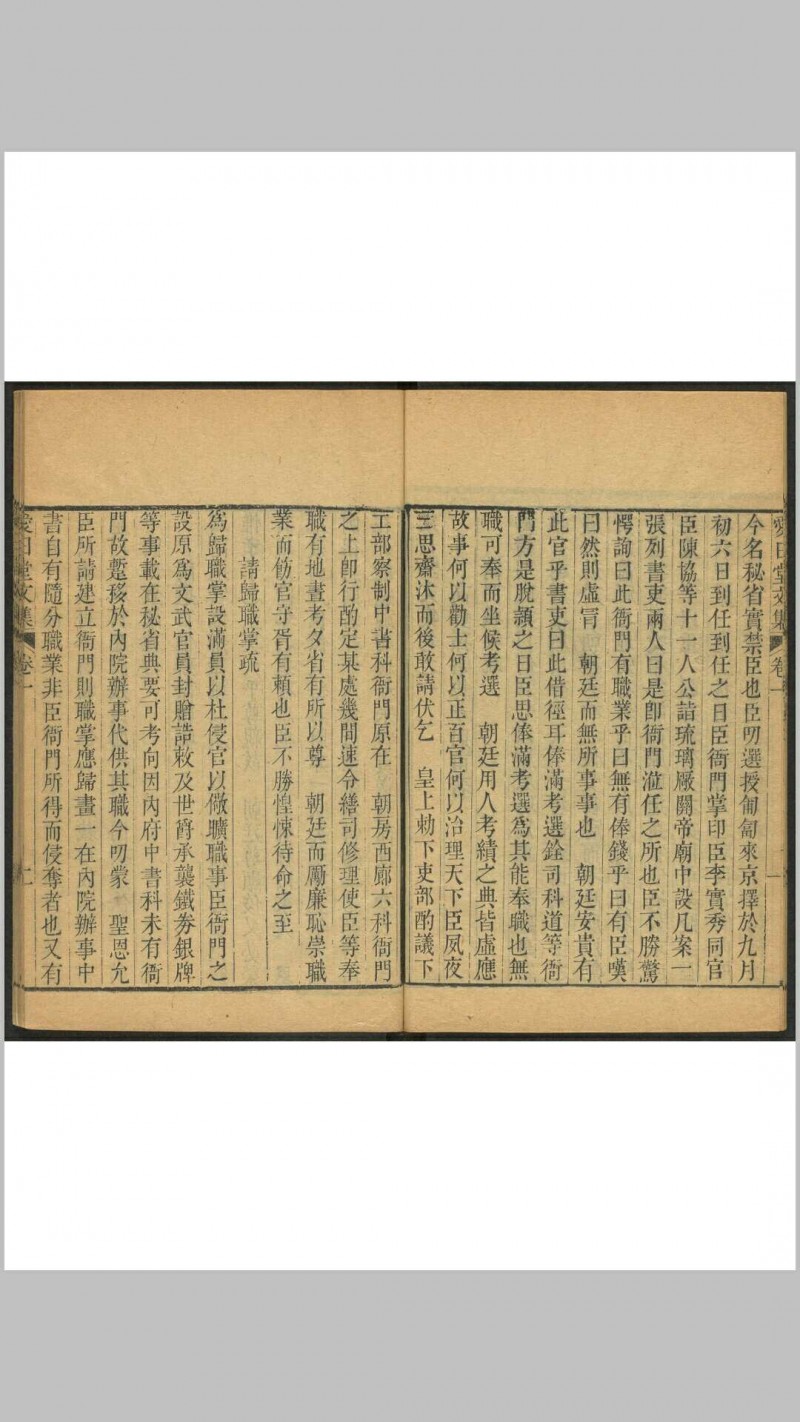 愛日堂文集 卷一 一
今名秘省實禁臣也臣叨選授匍匐來京擇於九月
初六日到任到任之日臣衙門掌印臣李實秀同官
臣陳協等十一人公詣琉璃厰關帝廟中設几案一
張列書吏兩人曰是卽衙門涖任之所也臣不勝驚
愕詢曰此衙門有職業乎曰無有俸錢乎曰有臣嘆
曰然則虛冒 朝廷而無所事事也 朝廷安貴有
此官乎書吏曰此借徑耳俸滿考選銓司科道等衙
門方是脫頴之日臣思俸滿考選爲其能奉職也無
職可奉而坐候考選 朝廷用人考績之典皆虛應
故事何以勸士何以正百官何以治理天下臣夙夜
三思齋沐而後敢請伏乞 皇上勅下吏部酌議下
工部察制中書科衙門原在 朝房西廊六科衙門
之上卽行酌定某處幾間速令繕司修理使臣等奉
職有地晝考夕省有所以尊 朝廷而厲廉恥崇職
業而飭官守胥有賴也臣不勝惶悚待命之至
請歸職掌疏
爲歸職掌設滿員以杜侵官以儆曠職事臣衙門之
設原爲文武官員封贈誥敕及世爵承襲鐵券銀牌
等事載在秘省典要可考向因內府中書科未有衙
門故蹔移於內院辦事代供其職今叨蒙 聖恩允
臣所請建立衙門則職掌應歸畫一在內院辦事中
書自有隨分職業非臣衙門所得而侵奪者也又有
愛日堂文集 卷一 二